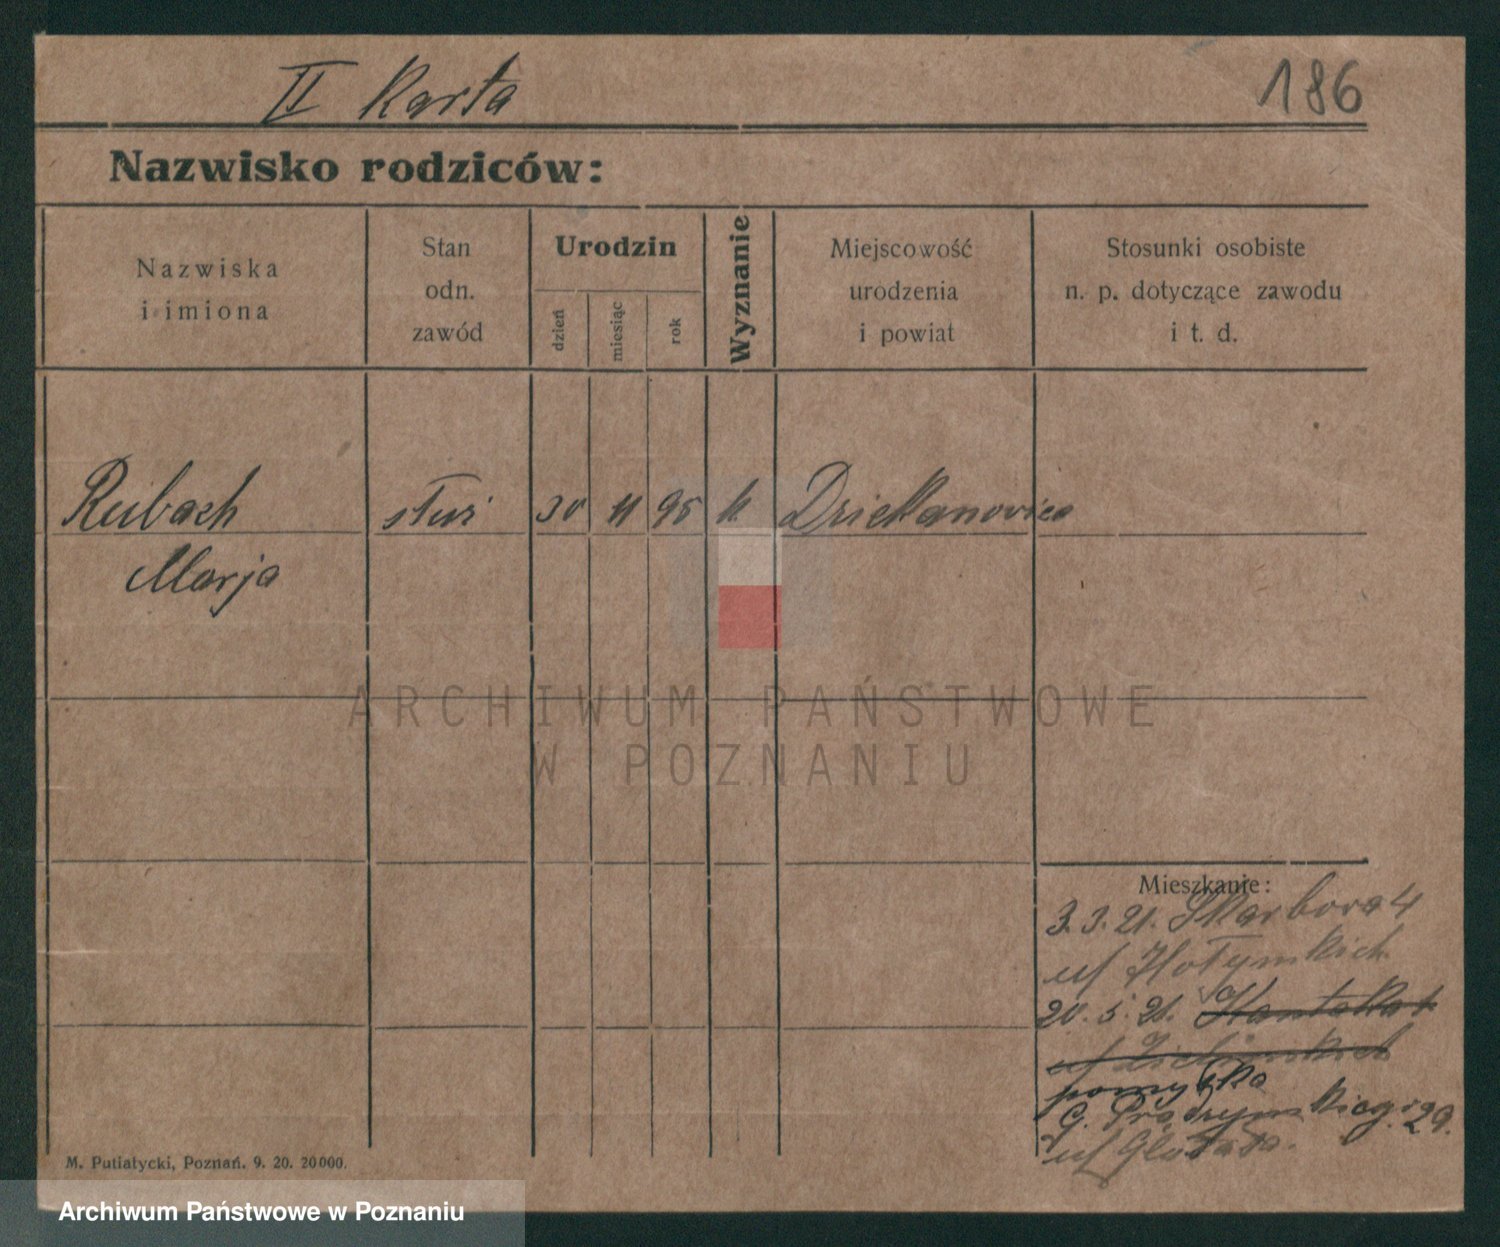 II Karta
186
Nazwisko rodziców:
Nazwiska
i imiona
Stan
odn.
zawód
Urodzin
dzień
miesiąc
rok
Wyznanie
Miejscowość
urodzenia
i powiat
Stosunki osobiste
n. p. dotyczące zawodu
i t. d.
Rubach służ 30 11 95 k Dziekanowice
Marja
ARCHIWUM PAŃSTWOWE
W POZNANIU
Mieszkanie:
3.3.21. Skarbova 4
20.5.21.
pomyłka
G. Prądzyńskieg. 29.
M. Putiatycki, Poznań. 9. 20. 20000.
Archiwum Państwowe w Poznaniu